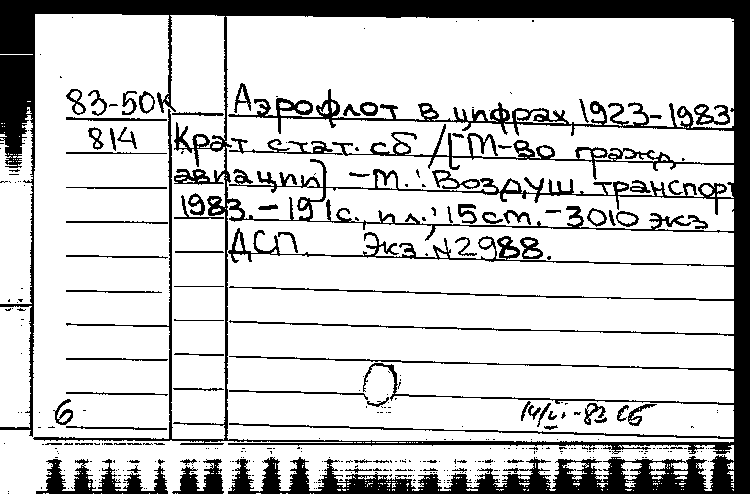 83-50К Аэрофлот в цифрах, 1923-1983
814 Крат. стат. сб / [М-во гражд.
авиации] - М.: Воздуш. транспорт
1983. - 191с., ил.; 15см. - 3010 экз
ДСП. Экз. №2988.
6